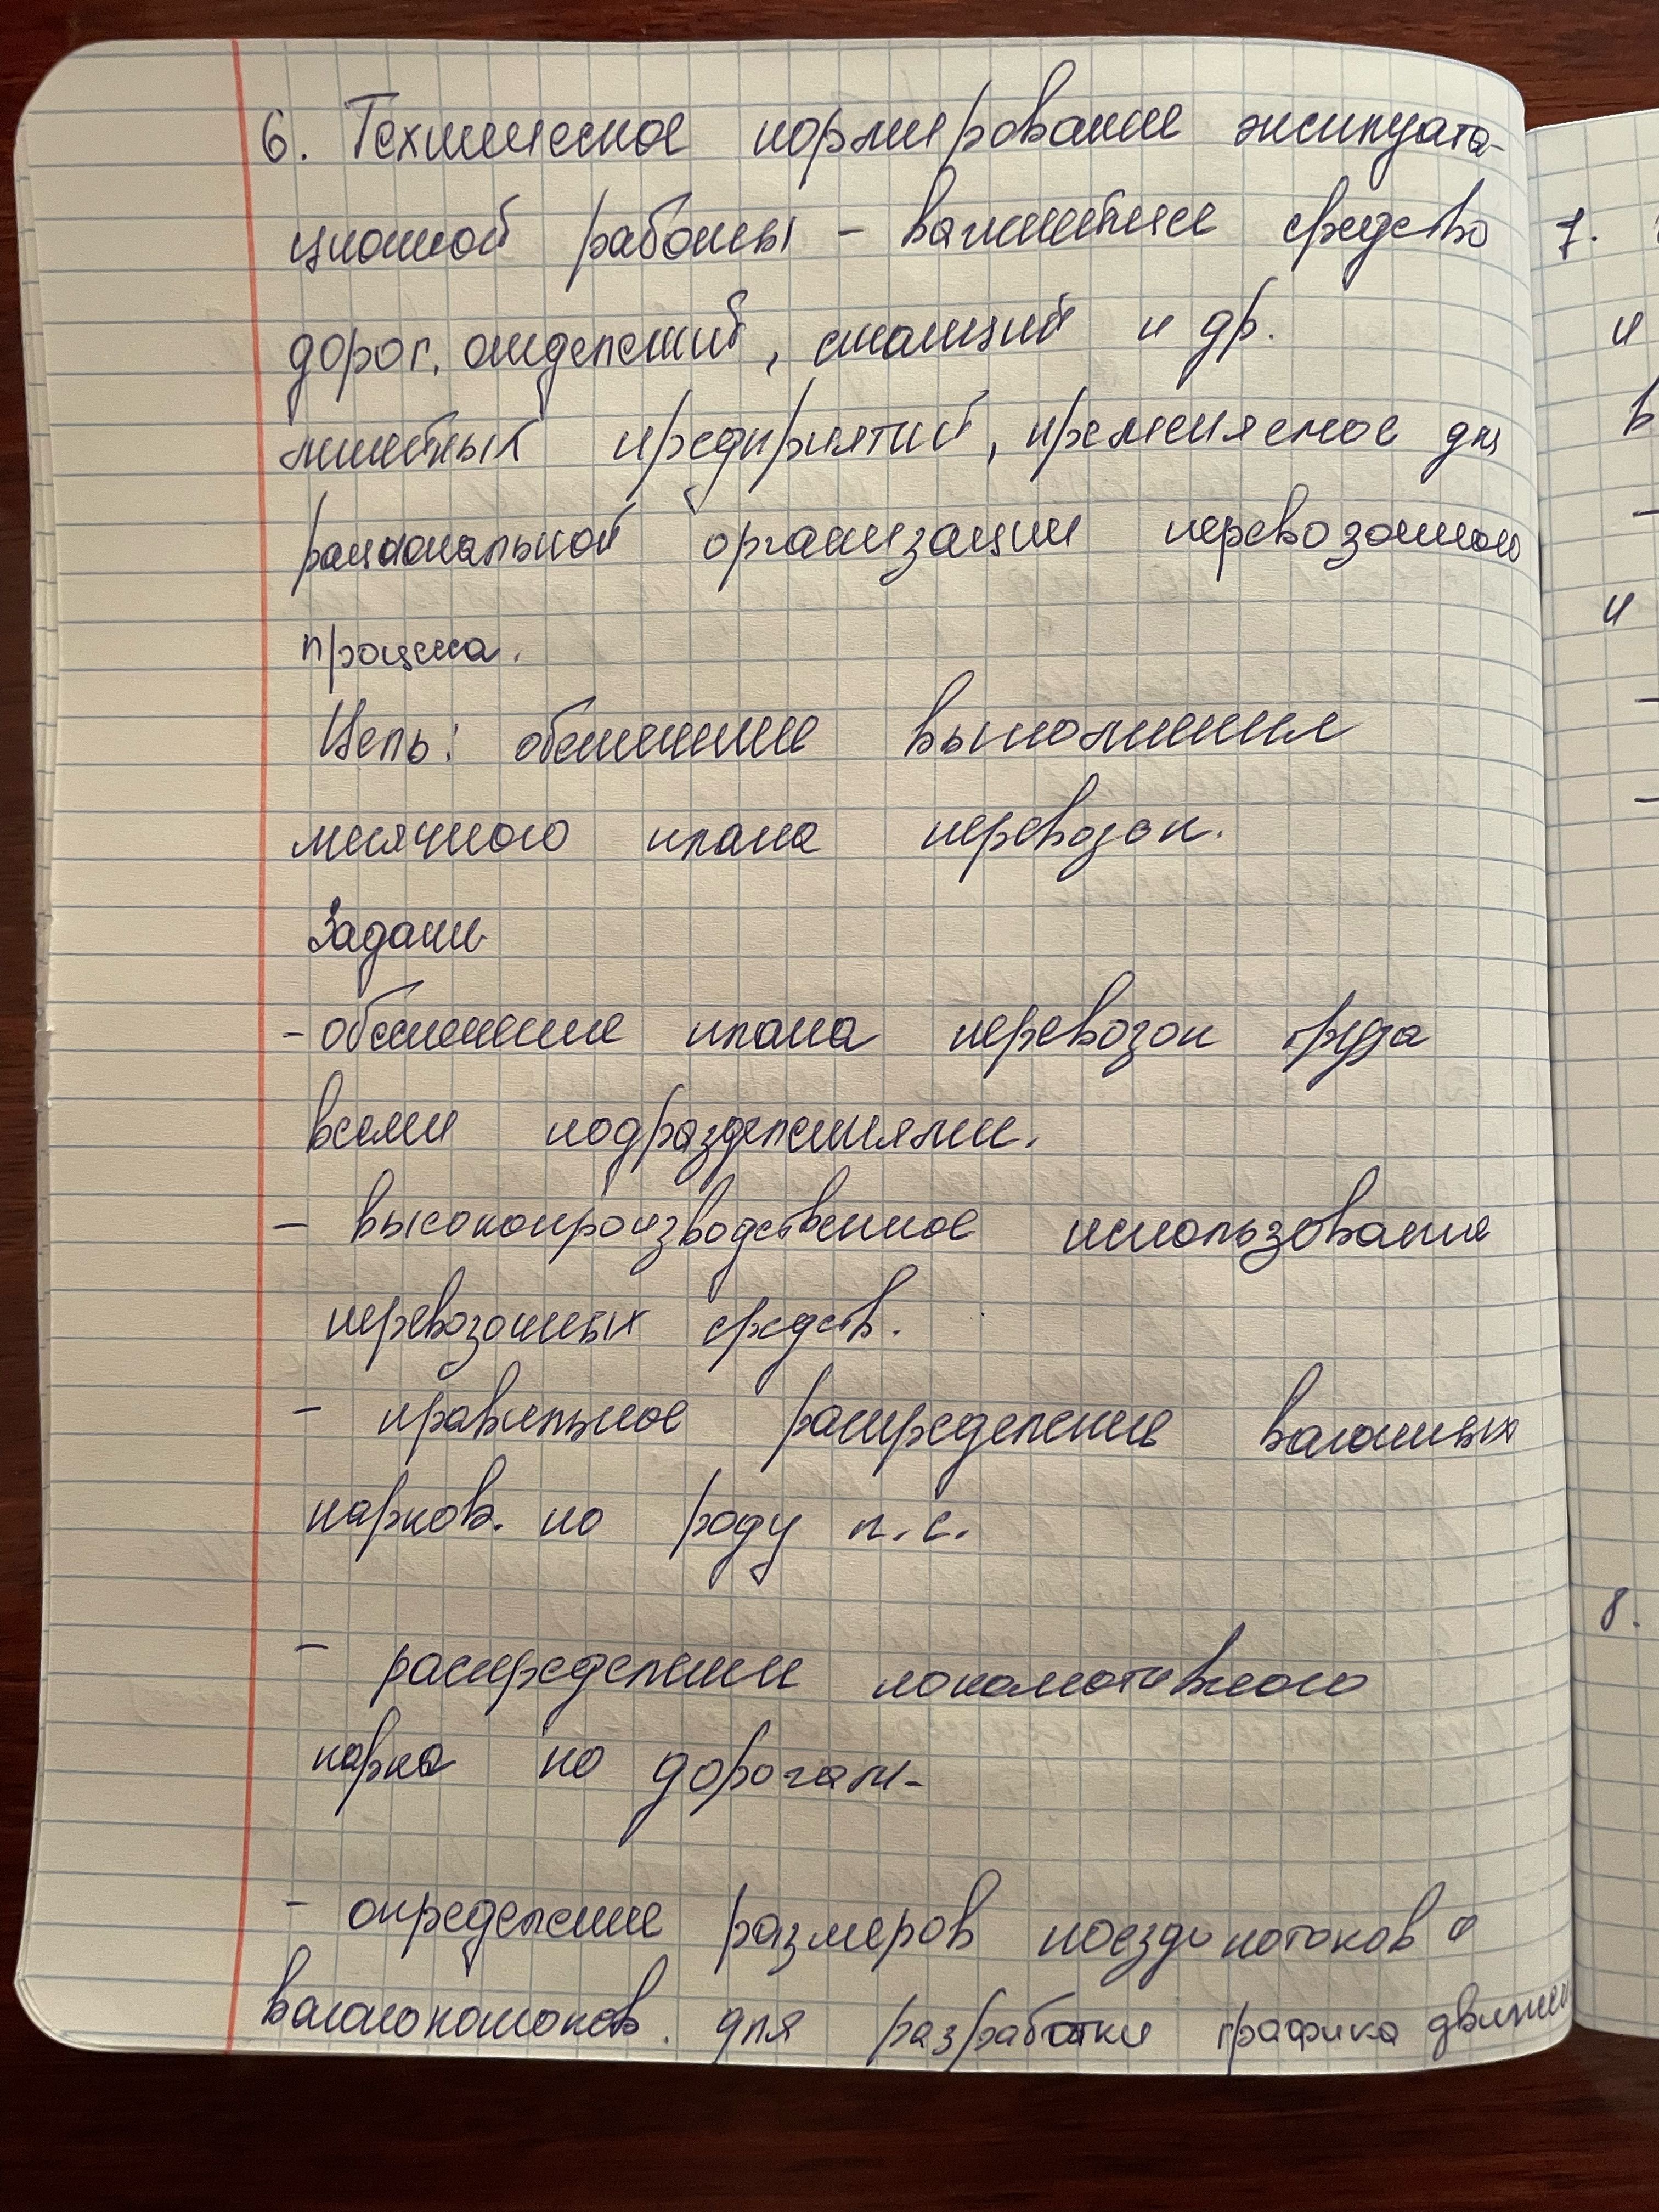 6. Техническое нормирование эксплуата-
ционной работы – важнейшее средство
дорог, отделений, станций и др.
линейных предприятий, применяемое для
рациональной организации перевозочного
процесса.
Цель: обеспечение выполнения
месячного плана перевозок.
Задачи
- обеспечение плана перевозок груза
всеми подразделениями.
- высокопроизводственное использование
перевозочных средств.
- правильное распределение вагонных
парков. по роду п.с.
- распределении локомотивного
парка по дорогам-
- определение размеров поездопотоков и
вагонопотоков. для разработки графика движен
7.
и
в
-
и
-
-
8.